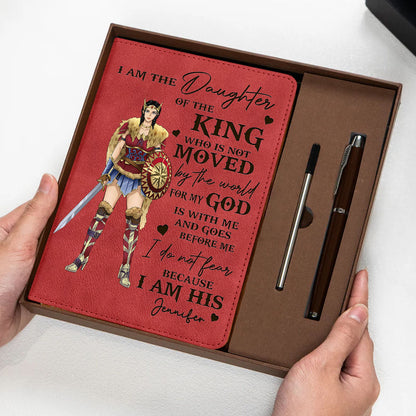 I AM THE Daughter
OF THE
KING
WHO IS NOT
MOVED
by the world
FOR MY GOD
IS WITH ME
AND GOES
BEFORE ME
I do not fear
BECAUSE
I AM HIS
Jennifer